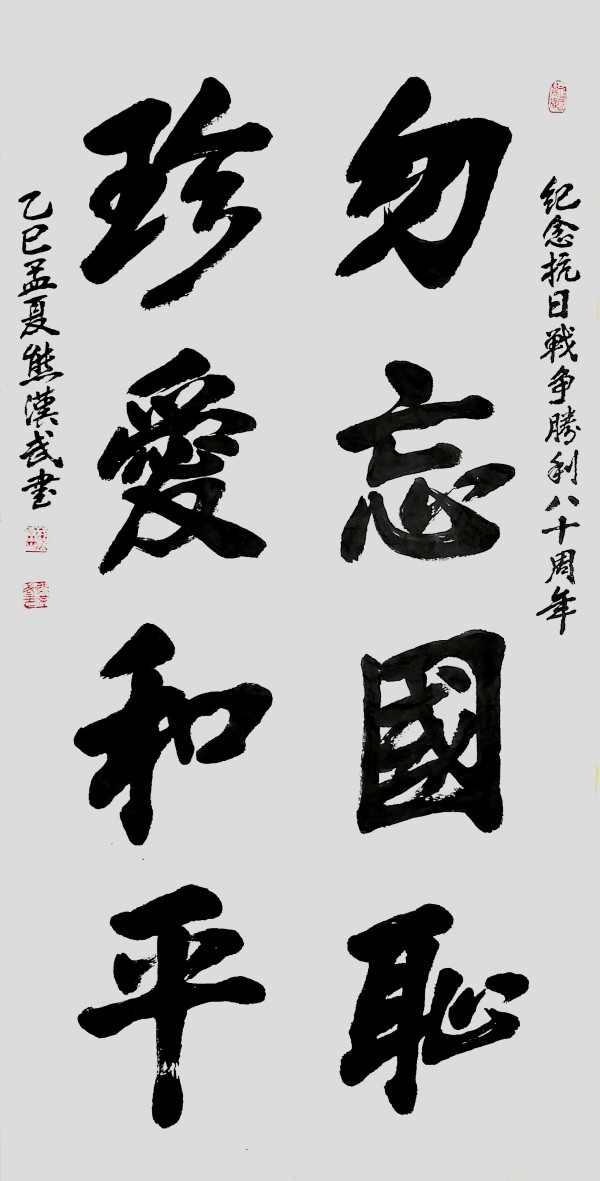 纪念抗日戦争勝利八十周年
勿忘國恥
珍愛和平
乙巳孟夏熊漢武书